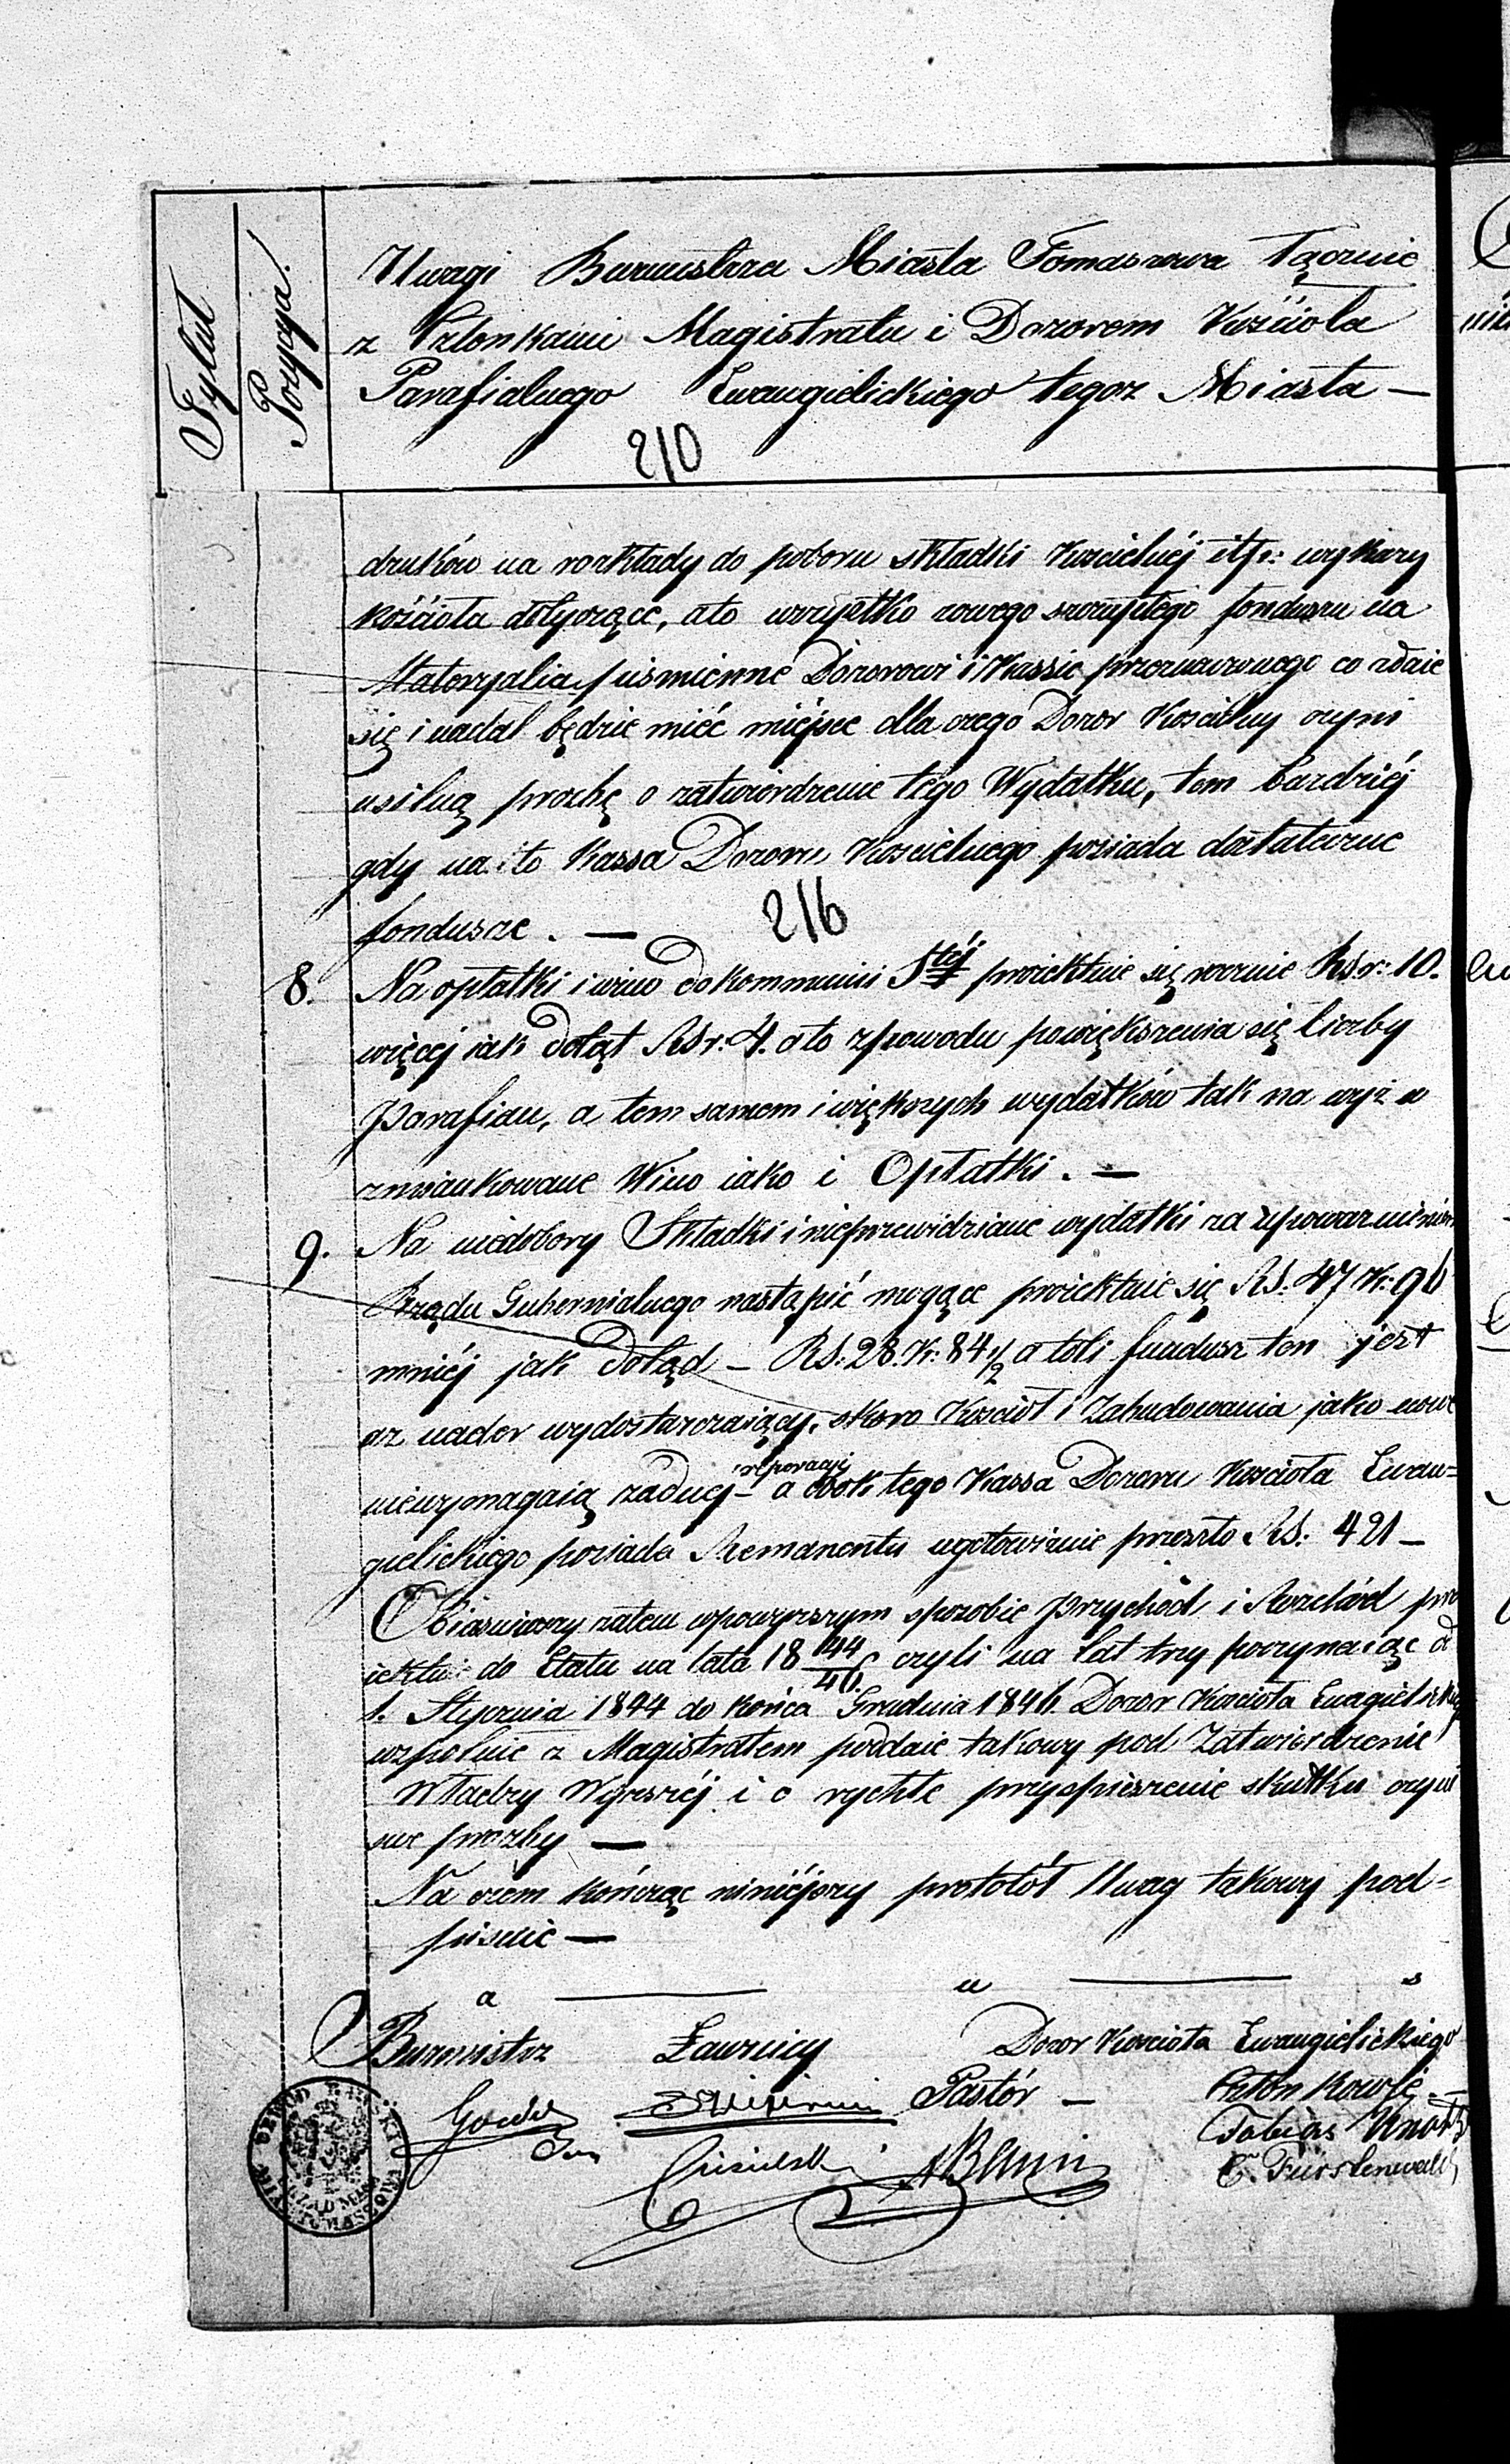 Tytuł
Pozycya.
Uwagi Burmistrza Miasta Tomaszowa łącznie
z Członkami Magistratu i Dozorem Kościoła
Parafialnego Ewangielickiego tegoż Miasta —
210
druków na rozkłady do poboru składki Kościelnéj itp: wykazy
kościoła dotyczące, a to wszystko z owego szczupłego fonduszu na
Materyalia piśmienne Dozorowi i Kassie przeznaczonego co zdaie
się i nadal będzie mieć miéjsce dla czego Dozor Kościelny czyni
usilną prozbę o zatwierdzenie tego Wydatku, tem bardziéj
gdy na to Kassa Dozoru Kościelnego posiada dostateczne
fondusze. —
216
8. Na opłatki i wino do kommunii Stéj proiektuie się rocznie Rsr: 10.
więcéj jak dotąt Rsr: 4. a to z powodu powiększenia się liczby
Parafian, a tem samem i większych wydatków tak na wyż
zmiankowane Wino iako i Opłatki. —
9. Na niedobory Składki i nieprzewidziane wydatki za upoważnieniem
Rządu Gubernialnego nastąpić mogące proiektuie się RS: 47 K: 96
mniéj jak dotąd — RS: 28. K: 84 1/2 a toli fundusz ten jest
az nader wydostarczaiący, skoro Kościoł i Zabudowania jako nowe
niewymagaią żadnej reperacyi — a obok tego Kassa Dozoru Kościoła Ewan=
gielickiego posiada Remanentu w gotowiznie przeszło RS: 421 —
Obiaśniony zatem w powyzszym sposobie Przychód i Rozchód pro
iektu do Etatu na lata 18 44/46. czyli na lat trzy poczynaiąc od
1. Stycznia 1844 do końca Grudnia 1846. Dozor Kościoła Ewagielickiego
wspolnie z Magistratem poddaie takowy pod Zatwierdzenie
Władzy Wyższéj i o rychłe przyspieszenie skutku czyni
swe prozby —
Na czem kończąc niniéjszy protokół Uwag takowy pod=
pisuie —
a — u — s
Burmistrz Ławnicy Dozor Kościoła Ewangielickiego
Pastór —
Tobias Knothe
C. Fürstenwald